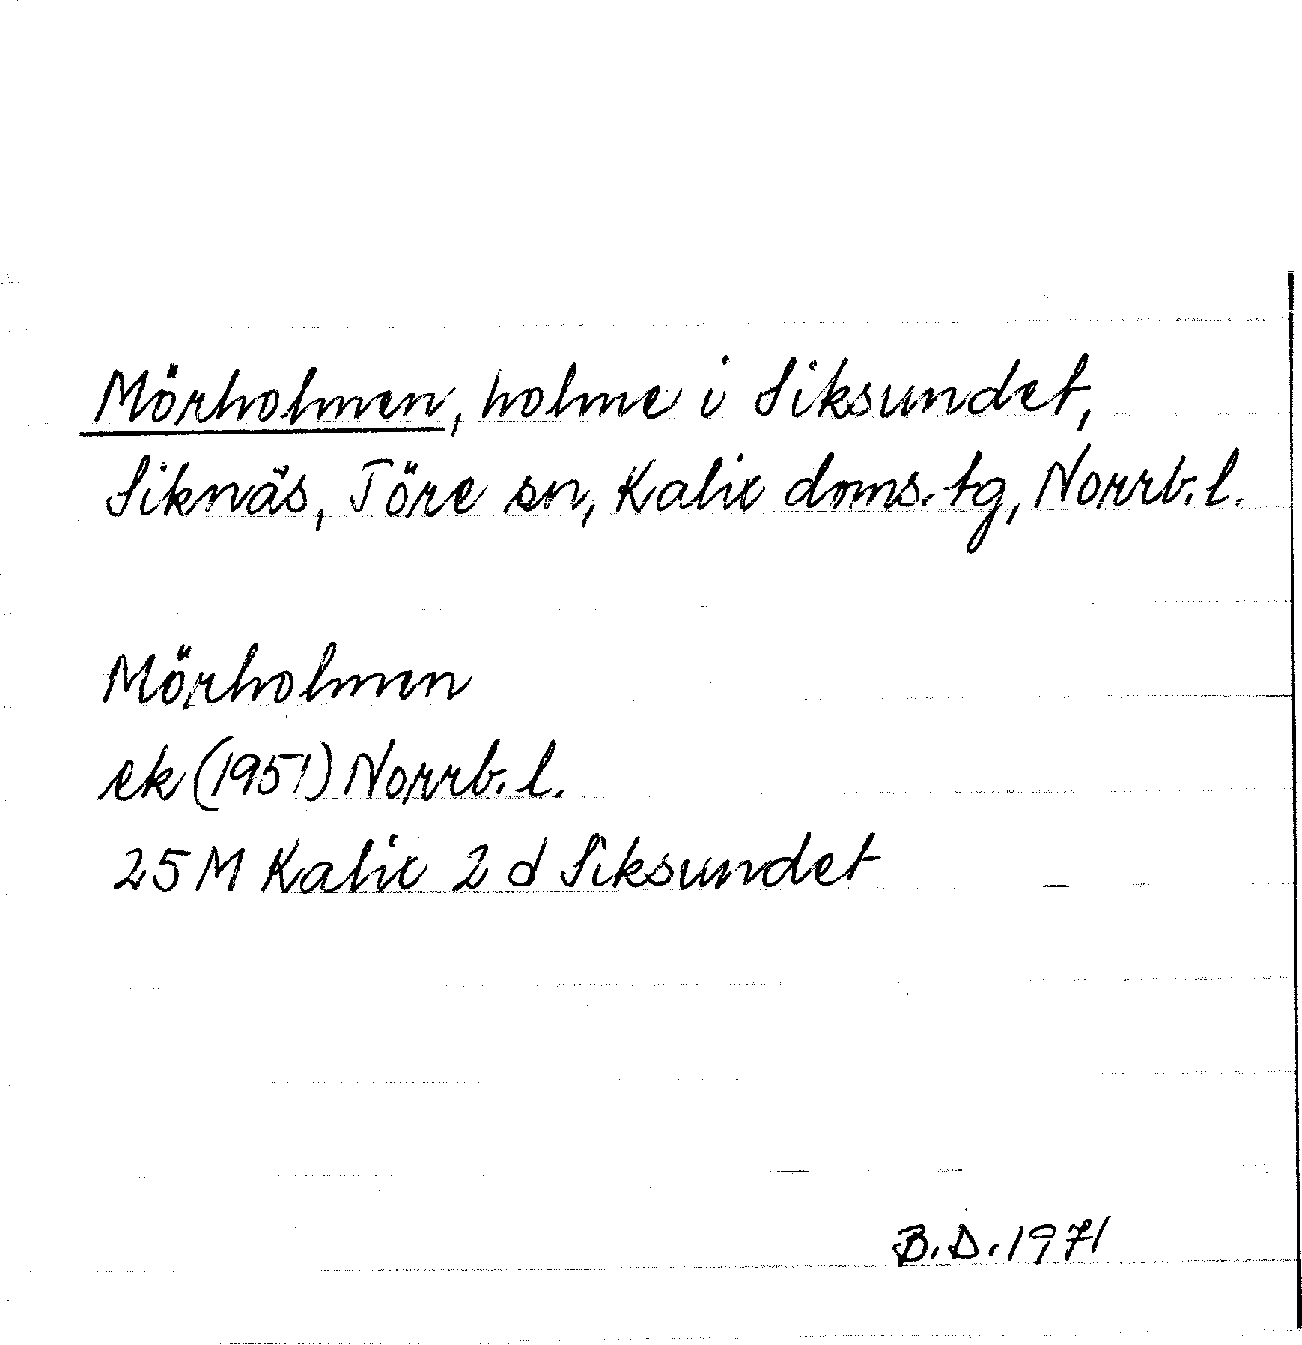 Mörholmen, holme i Siksundet,
Siknäs, Töre sn, Kalix doms. tg, Norrb. l.
Mörholmen
ek (1951) Norrb. l.
25 M Kalix 2 d Siksundet
B.D. 1971